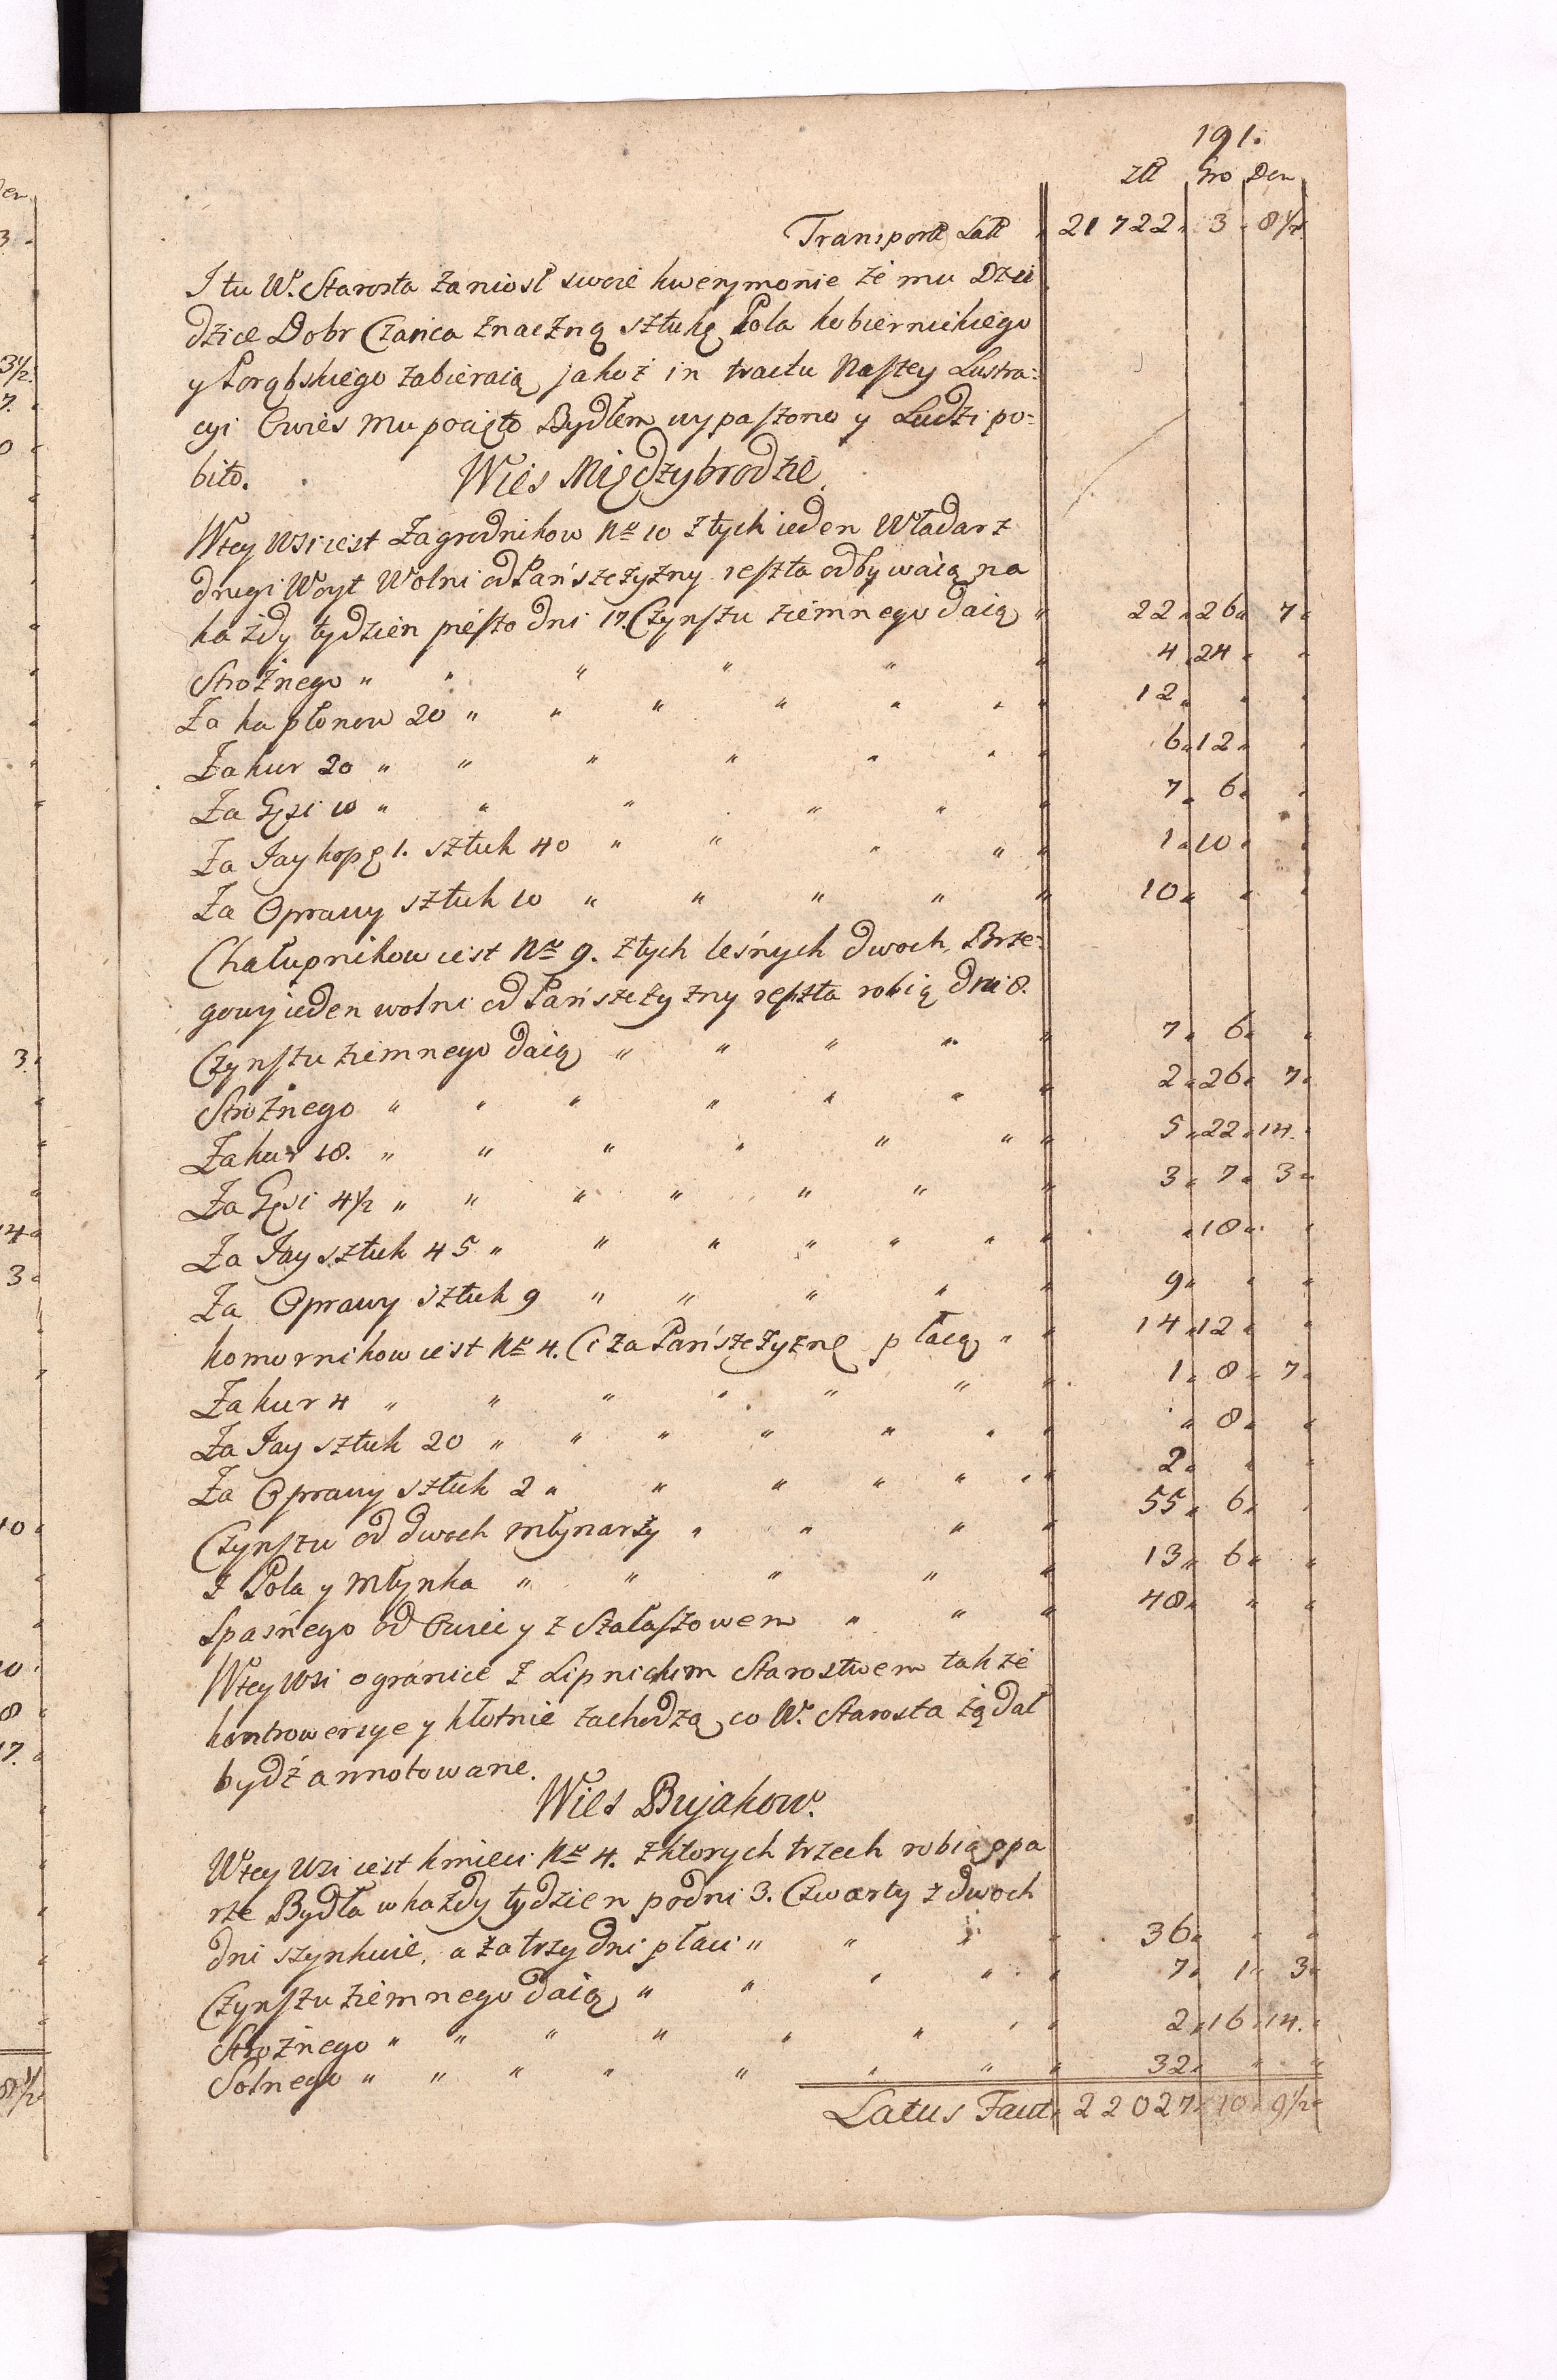 191.
Złł Gro Den
Transport Latt 21722 3 8 1/2
I tu W. Starosta zaniosł swoie kwerymonie że mu Dzie
dzice Dobr Czańca znaczną sztukę Pola kobiernickiego
y Porąbskiego zabieraią jakoż in tractu Naszey Lustra=
cyi Owies mu pocięto Bydłem wypaszono y Ludzi po=
bito.
Wies Międzybrodzie.
W tey wsi iest Zagrodnikow Nro 10 z tych ieden Władarz
drugi Woyt Wolni od Pańszczyzny reszta odbywaią na
każdy tydzien pieszo dni 17. Czynszu ziemnego daią " 22 " 26 " 7 "
Strożnego " " " " " " 4 " 24 " "
Za kapłonow 20 " " " " " " " 12 " " "
Za kur 20 " " " " " " " 6 " 12 " "
Za Gęsi 10 " " " " " " 7 " 6 " "
Za Jay kopę 1. sztuk 40 " " " " " 1 " 10 " "
Za Oprawy sztuk 10 " " " " " 10 " " "
Chałupnikow iest Nro 9. z tych leśnych dwoch, Brze=
gowy ieden wolni od Pańszczyzny reszta robią dni 8.
Czynszu ziemnego daią " " " " " 7 " 6 " "
Strożnego " " " " " " " 2 " 26 " 7 "
Za kur 18. " " " " " " " 5 " 22 " 14. "
Za Gęsi 4 1/2 " " " " " " " 3 " 7 " 3 "
Za Jay sztuk 45 " " " " " " " " 18 " "
Za Oprawy sztuk 9 " " " " " 9 " " "
komornikow iest Nro 4. Ci za Pańszczyznę płacą " " 14 " 12 " "
Za kur 4 " " " " " " " 1 " 8 " 7 "
Za Jay sztuk 20 " " " " " " " " 8 " "
Za Oprawy sztuk 2 " " " " " " " 2 " " "
Czynszu od dwoch młynarzy " " " " 55 " 6 " "
z Pola y młynka " " " " " 13 " 6 " "
Spaśnego od Owiec y z Szałaszowem " " " 48 " " "
W tey wsi o granice z Lipnickim Starostwem także
kontrowersye y kłotnie zachodzą, co W. Starosta żądał
bydź annotowane.
Wies Bujakow.
W tey wsi iest kmieci Nro 4. z ktorych trzech robią opa
rze Bydła w każdy tydzien po dni 3. Czwarty z dwoch
dni szynkuie, a za trzy dni płaci " " " " 36 " " "
Czynszu ziemnego daią " " " " " 7 " 1 " 3 "
Strożnego " " " " " " " " 2 " 16 " 14. "
Solnego " " " " " " " " 32 " " "
Latus Facit 22027 " 10 " 9 1/2 "